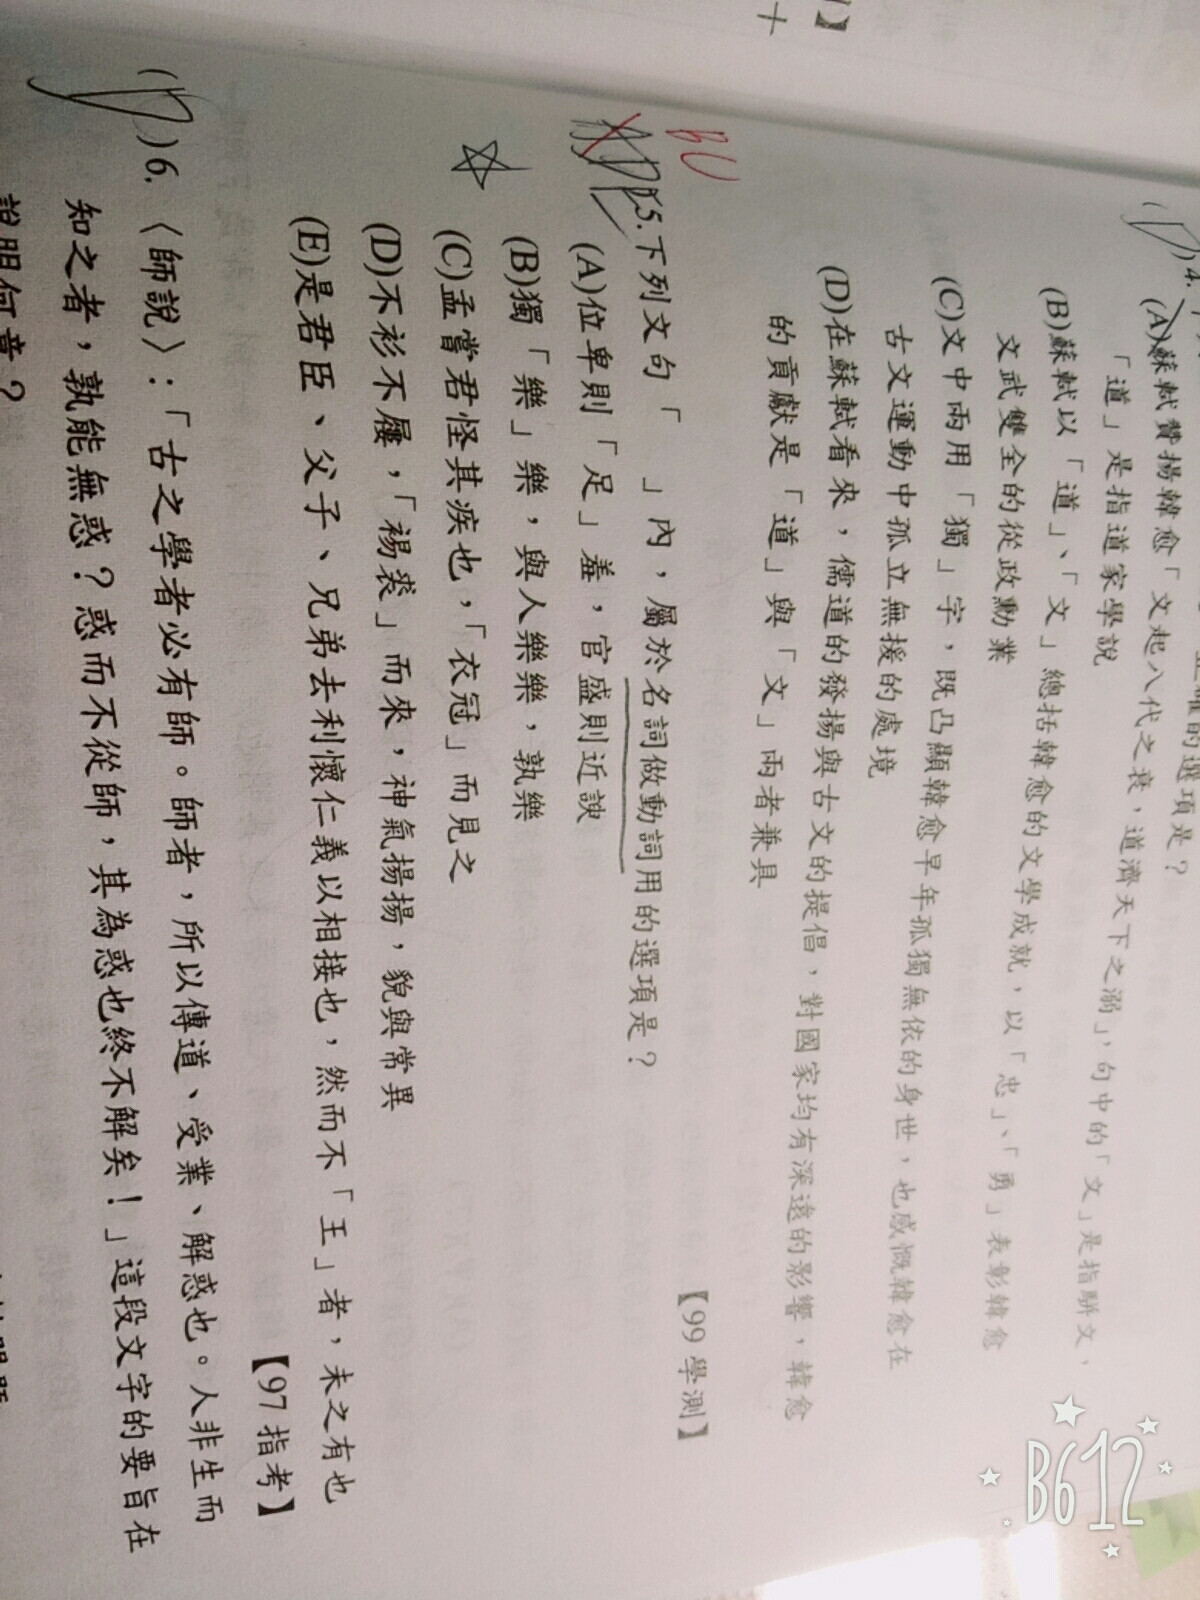 】
十
正確的選項是？
4.
(A)蘇軾贊揚韓愈「文起八代之衰，道濟天下之溺」，句中的「文」是指駢文，
「道」是指道家學說
(B)蘇軾以「道」、「文」總括韓愈的文學成就，以「忠」、「勇」表彰韓愈
文武雙全的從政勳業
(C)文中兩用「獨」字，既凸顯韓愈早年孤獨無依的身世，也感慨韓愈在
古文運動中孤立無援的處境
(D)在蘇軾看來，儒道的發揚與古文的提倡，對國家均有深遠的影響，韓愈
的貢獻是「道」與「文」兩者兼具
【99學測】
5.下列文句「 」內，屬於名詞做動詞用的選項是？
(A)位卑則「足」羞，官盛則近諛
(B)獨「樂」樂，與人樂樂，孰樂
(C)孟嘗君怪其疾也，「衣冠」而見之
(D)不衫不屨，「裼裘」而來，神氣揚揚，貌與常異
(E)是君臣、父子、兄弟去利懷仁義以相接也，然而不「王」者，未之有也
【97指考】
(D)6.〈師說〉：「古之學者必有師。師者，所以傳道、受業、解惑也。人非生而
知之者，孰能無惑？惑而不從師，其為惑也終不解矣！」這段文字的要旨在
說明何意？
B612